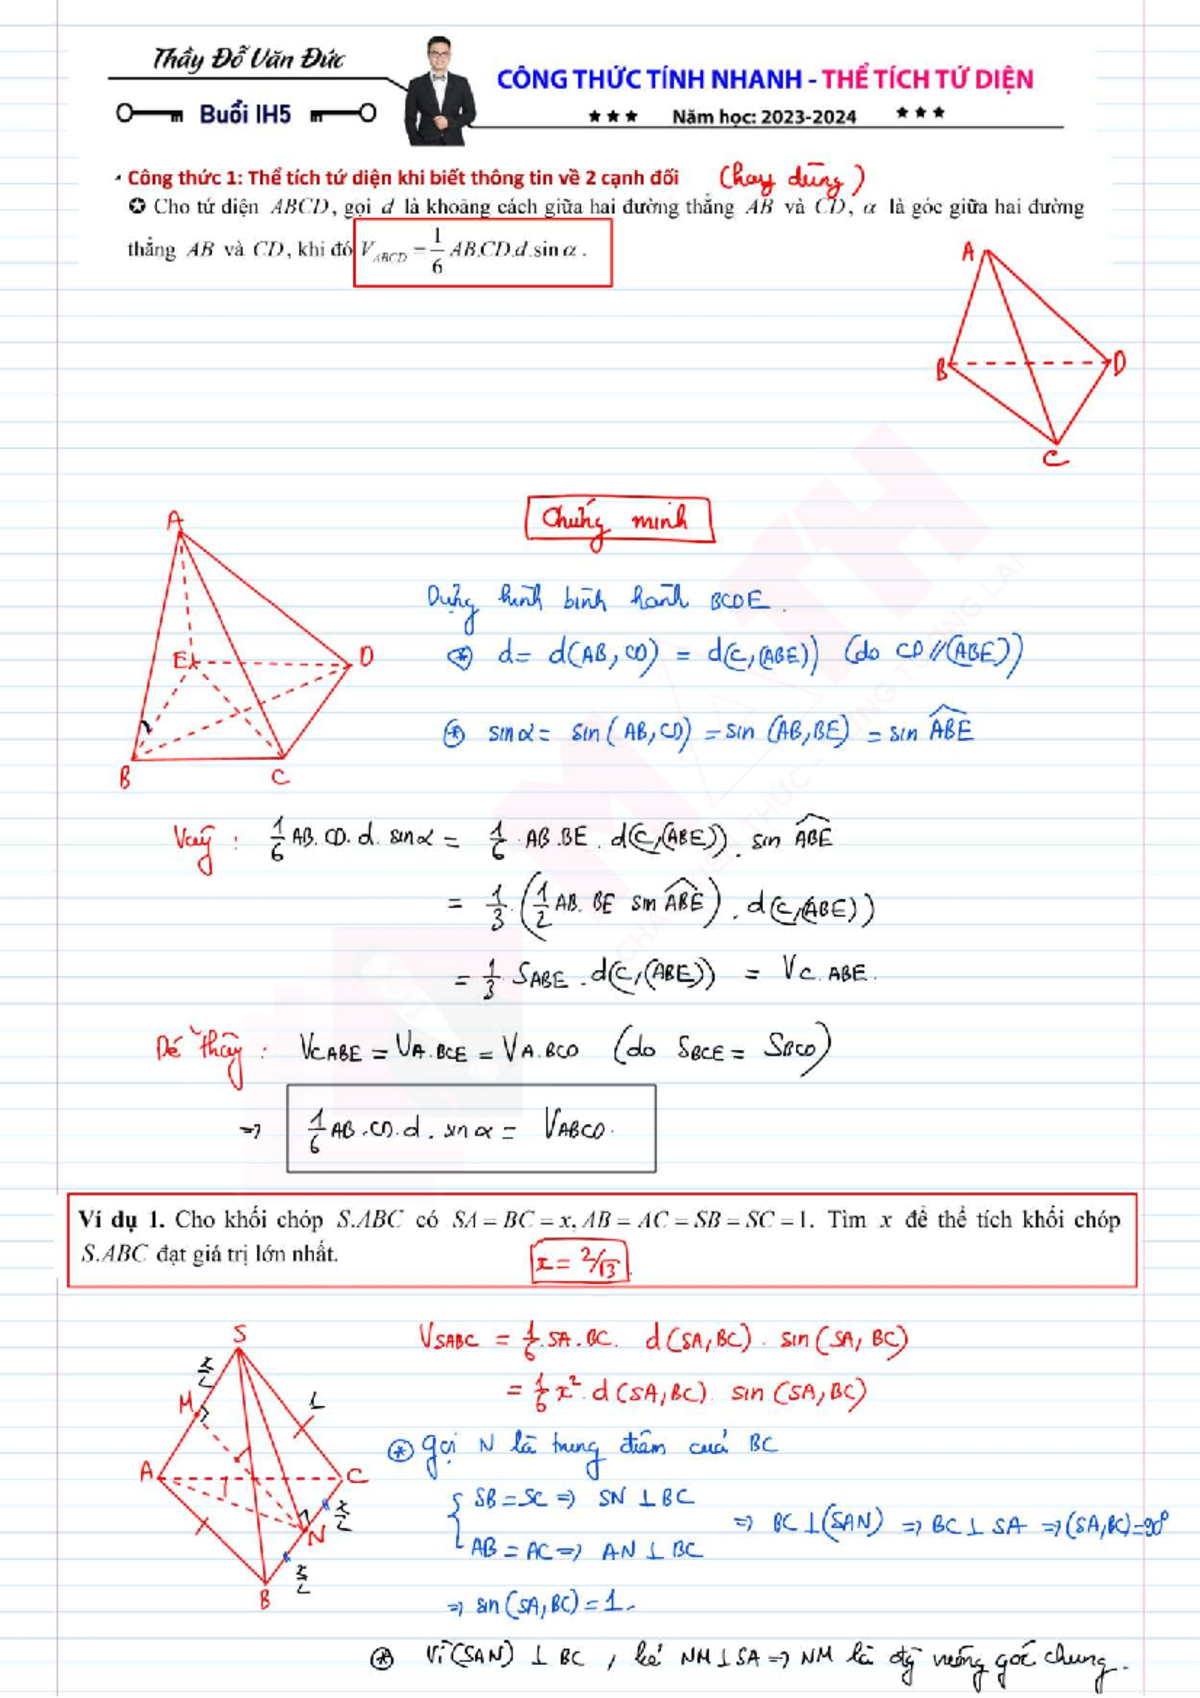 Thầy Đỗ Văn Đức
Buổi IH5
CÔNG THỨC TÍNH NHANH - THỂ TÍCH TỨ DIỆN
★ ★ ★ Năm học: 2023-2024 ★ ★ ★
Công thức 1: Thể tích tứ diện khi biết thông tin về 2 cạnh đối (hay dùng)
✪ Cho tứ diện ABCD, gọi d là khoảng cách giữa hai đường thẳng AB và CD, α là góc giữa hai đường
thẳng AB và CD, khi đó V_ABCD = 1/6 AB.CD.d.sin α.
A
B
D
C
Chứng minh
A
E
D
B
C
Dựng hình bình hành BCDE.
⊛ d = d(AB, CD) = d(C,(ABE)) (do CD // (ABE))
⊛ sin α = sin(AB, CD) = sin(AB, BE) = sin ABE
Vậy: 1/6 AB. CD. d. sin α = 1/6 . AB.BE. d(C,(ABE)). sin ABE
= 1/3 . (1/2 AB. BE sin ABE). d(C,(ABE))
= 1/3 . S_ABE . d(C,(ABE)) = V_C.ABE.
Dễ thấy: V_CABE = V_A.BCE = V_A.BCD (do S_BCE = S_BCD)
=> 1/6 AB.CD.d. sin α = V_ABCD.
Ví dụ 1. Cho khối chóp S.ABC có SA = BC = x, AB = AC = SB = SC = 1. Tìm x để thể tích khối chóp
S.ABC đạt giá trị lớn nhất.
x = 2/√3
S
x/2
M
1
A
C
x/2
N
x/2
B
V_SABC = 1/6 . SA . BC. d(SA, BC) . sin(SA, BC)
= 1/6 x² . d(SA, BC). sin(SA, BC)
⊛ gọi N là trung điểm của BC
{ SB = SC => SN ⊥ BC
AB = AC => AN ⊥ BC
=> BC ⊥ (SAN) => BC ⊥ SA => (SA, BC) = 90°
=> sin(SA, BC) = 1.
⊛ Vì (SAN) ⊥ BC, kẻ NM ⊥ SA => NM là đg vuông góc chung.